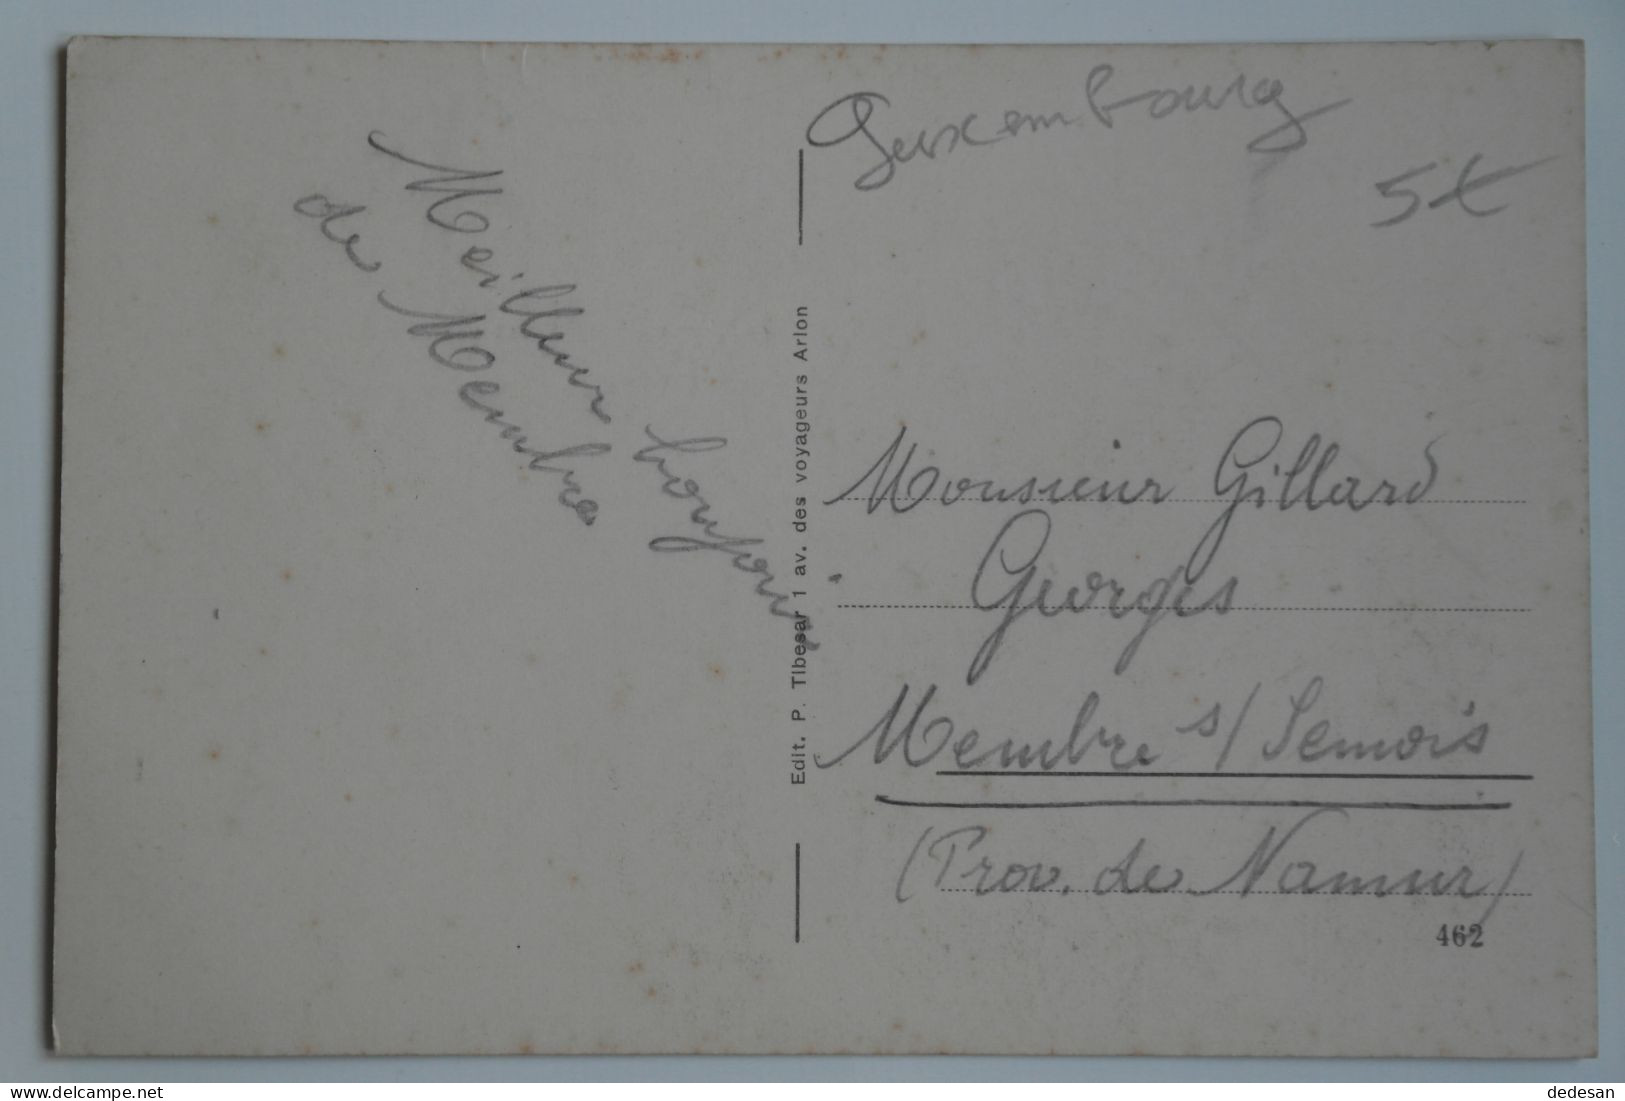 Meilleur bonjour
de Membre
Edit. P. Tibesar 1 av. des voyageurs Arlon
Luxembourg
5€
Monsieur Gillard
Georges
Membre s/Semois
(Prov. de Namur)
462
delcampe.net
dedesan